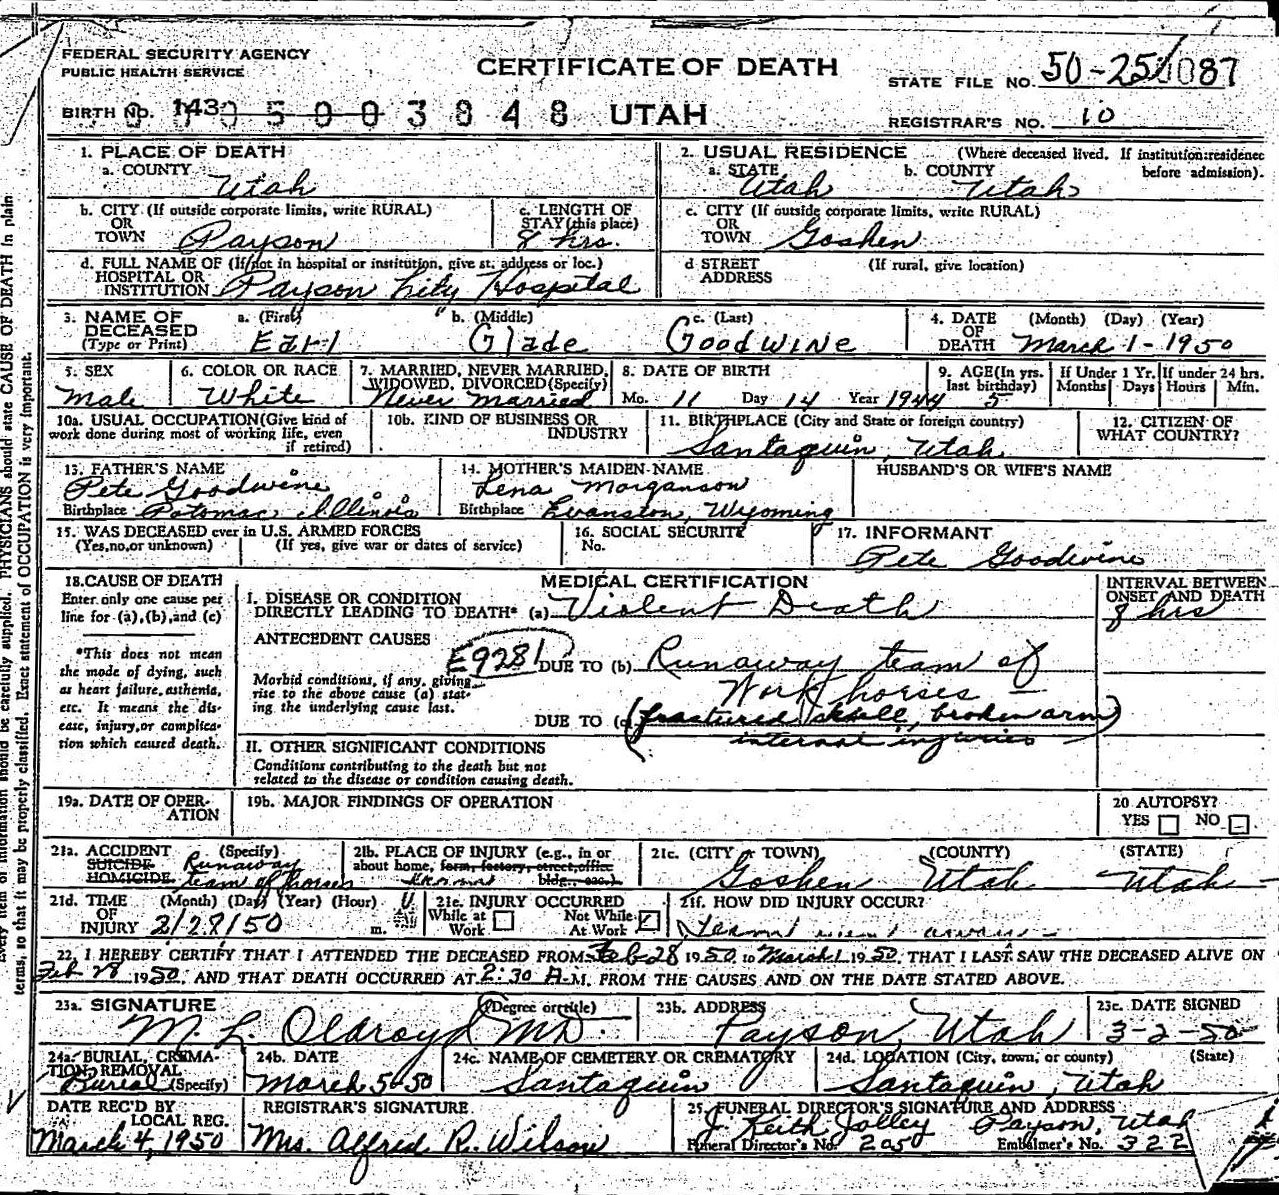 FEDERAL SECURITY AGENCY
PUBLIC HEALTH SERVICE
CERTIFICATE OF DEATH
STATE FILE NO. 50-25 0087
BIRTH NO. 143 05003848 UTAH
REGISTRAR'S NO. 10
1. PLACE OF DEATH
a. COUNTY Utah
2. USUAL RESIDENCE (Where deceased lived. If institution:residence before admission).
a. STATE Utah b. COUNTY Utah
b. CITY (If outside corporate limits, write RURAL) OR TOWN Payson
c. LENGTH OF STAY (this place) 8 hrs.
c. CITY (If outside corporate limits, write RURAL) OR TOWN Goshen
d. FULL NAME OF (If not in hospital or institution, give st. address or loc.) HOSPITAL OR INSTITUTION Payson City Hospital
d STREET ADDRESS (If rural, give location)
3. NAME OF DECEASED (Type or Print)
a. (First) Earl b. (Middle) Glade c. (Last) Goodwine
4. DATE OF DEATH (Month) (Day) (Year) March 1-1950
5. SEX Male
6. COLOR OR RACE White
7. MARRIED, NEVER MARRIED, WIDOWED, DIVORCED (Specify) Never Married
8. DATE OF BIRTH Mo. 11 Day 14 Year 1944
9. AGE (In yrs. last birthday) 5
If Under 1 Yr. Months Days
If under 24 hrs. Hours Min.
10a. USUAL OCCUPATION (Give kind of work done during most of working life, even if retired)
10b. KIND OF BUSINESS OR INDUSTRY
11. BIRTHPLACE (City and State or foreign country) Santaquin, Utah
12. CITIZEN OF WHAT COUNTRY?
13. FATHER'S NAME Pete Goodwine
Birthplace Potomac Illinois
14. MOTHER'S MAIDEN NAME Lena Morganson
Birthplace Evanston, Wyoming
HUSBAND'S OR WIFE'S NAME
15. WAS DECEASED ever in U.S. ARMED FORCES
(Yes, no, or unknown) (If yes, give war or dates of service)
16. SOCIAL SECURITY No.
17. INFORMANT Pete Goodwine
18. CAUSE OF DEATH
Enter only one cause per line for (a), (b), and (c)
*This does not mean the mode of dying, such as heart failure, asthenia, etc. It means the disease, injury, or complication which caused death.
MEDICAL CERTIFICATION
INTERVAL BETWEEN ONSET AND DEATH
8 hrs
I. DISEASE OR CONDITION DIRECTLY LEADING TO DEATH* (a) Violent Death
ANTECEDENT CAUSES
E9281
DUE TO (b) Runaway team of
Work horses
Morbid conditions, if any, giving rise to the above cause (a) stating the underlying cause last.
DUE TO (c) (fractured skull, broken arm)
internal injuries
II. OTHER SIGNIFICANT CONDITIONS
Conditions contributing to the death but not related to the disease or condition causing death.
19a. DATE OF OPERATION
19b. MAJOR FINDINGS OF OPERATION
20 AUTOPSY?
YES NO
21a. ACCIDENT SUICIDE HOMICIDE (Specify) Runaway team of horses
21b. PLACE OF INJURY (e.g., in or about home, farm, factory, street, office bldg., etc.)
21c. (CITY or TOWN) (COUNTY) (STATE)
Goshen Utah Utah
21d. TIME OF INJURY (Month) (Day) (Year) (Hour) m.
2/28/50
21e. INJURY OCCURRED
While at Work Not While At Work
21f. HOW DID INJURY OCCUR?
team went away
22. I HEREBY CERTIFY THAT I ATTENDED THE DECEASED FROM Feb 28 1950, TO March 1 1950, THAT I LAST SAW THE DECEASED ALIVE ON
Feb 28 1950, AND THAT DEATH OCCURRED AT 2:30 A.M. FROM THE CAUSES AND ON THE DATE STATED ABOVE.
23a. SIGNATURE (Degree or title)
M. L. Oldroyd MD.
23b. ADDRESS
Payson, Utah
23c. DATE SIGNED
3-2-50
24a. BURIAL, CREMATION, REMOVAL (Specify) Burial
24b. DATE March 5-50
24c. NAME OF CEMETERY OR CREMATORY Santaquin
24d. LOCATION (City, town, or county) (State)
Santaquin, Utah
DATE REC'D BY LOCAL REG. March 4, 1950
REGISTRAR'S SIGNATURE
Mrs. Alfred R. Wilson
25. FUNERAL DIRECTOR'S SIGNATURE AND ADDRESS
J. Keith Jolley Payson, Utah
Funeral Director's No. 205 Embalmer's No. 322
Every item of information should be carefully supplied. PHYSICIANS should state CAUSE OF DEATH in plain
terms, so that it may be properly classified. Exact statement of OCCUPATION is very important.